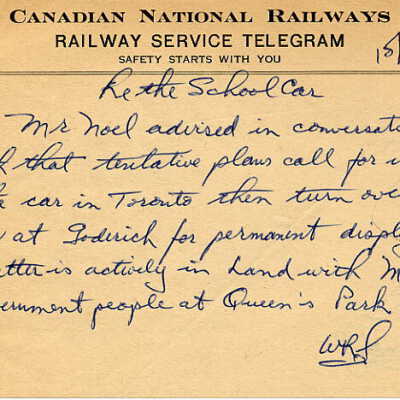 CANADIAN NATIONAL RAILWAYS
RAILWAY SERVICE TELEGRAM
SAFETY STARTS WITH YOU
Re the School Car
Mr Noel advised in conversat
that tentative plans call for
car in Toronto then turn ove
at Goderich for permanent displ
atter is actively in hand with M
vernment people at Queen's Park
WRS